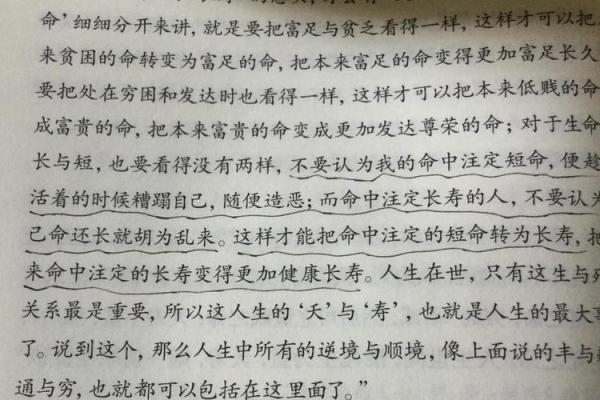 命’细细分开来讲，就是要把富足与贫乏看得一样，这样才可以把
来贫困的命转变为富足的命，把本来富足的命变得更加富足长久
要把处在穷困和发达时也看得一样，这样才可以把本来低贱的命
成富贵的命，把本来富贵的命变成更加发达尊荣的命；对于生命
长与短，也要看得没有两样，不要认为我的命中注定短命，便趁
活着的时候糟蹋自己，随便造恶；而命中注定长寿的人，不要认为
己命还长就胡为乱来。这样才能把命中注定的短命转为长寿，把
来命中注定的长寿变得更加健康长寿。人生在世，只有这生与
关系最是重要，所以这人生的‘夭’与‘寿’，也就是人生的最大
了。说到这个，那么人生中所有的逆境与顺境，像上面说的丰与
通与穷，也就都可以包括在这里面了。”